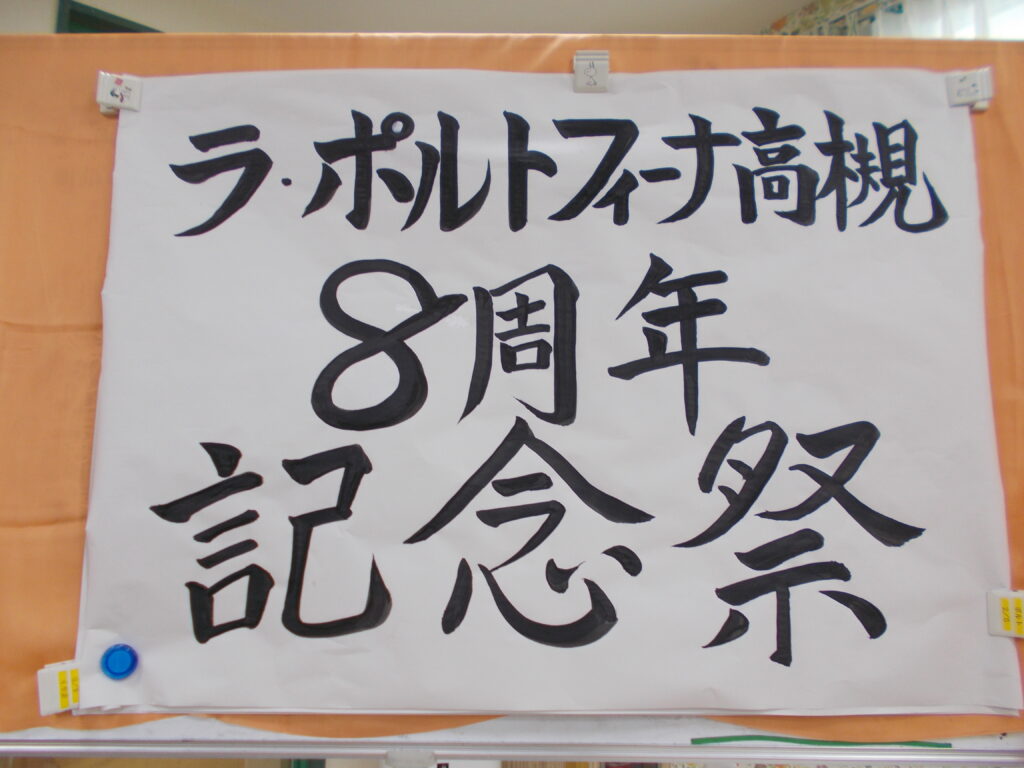 ラ・ポルトフィーナ高槻
8周年
記念祭